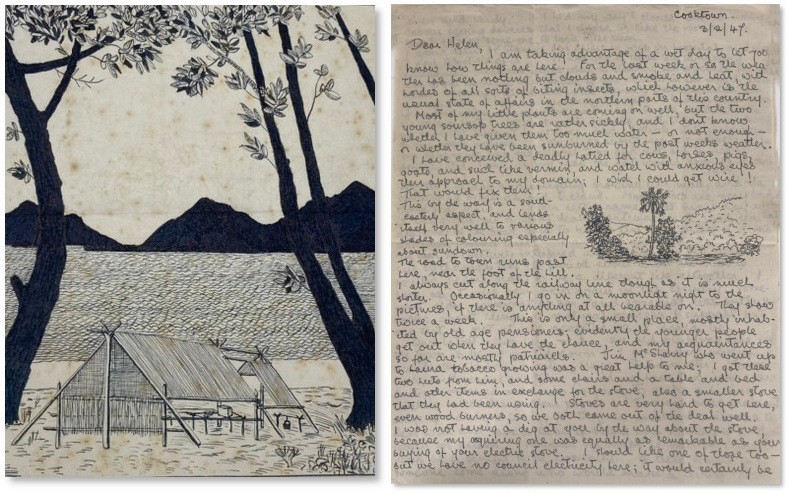 Cooktown.
2/2/47.
Dear Helen,
I am taking advantage of a wet day to let you
know how things are here. For the last week or so the wea-
ther has been nothing but clouds and smoke and heat, with
hordes of all sorts of biting insects, which however is the
usual state of affairs in the northern parts of this country.
Most of my little plants are coming on well, but the two
young soursop trees are rather sickly, and I don't know
whether I have given them too much water – or not enough –
or whether they have been sunburned by the past weeks weather.
I have conceived a deadly hatred for cows, horses, pigs,
goats, and such like vermin, and watch with anxious eyes
their approach to my domain; I wish I could get wire!
That would fix them!
This by the way is a south-
easterly aspect, and lends
itself very well to various
shades of colouring especially
about sundown.
The road to town runs past
here, near the foot of the hill.
I always cut along the railway line though as it is much
shorter. Occasionally I go in on a moonlight night to the
pictures, if there is anything at all bearable on. They show
twice a week. This is only a small place, mostly inhab-
ited by old age pensioners; evidently the younger people
get out when they have the chance, and my acquaintances
so far are mostly patriarchs. Jim who went up
to tobacco growing was a great help to me; I got these
two huts from him, and some chairs and a table and bed
and other items in exchange for the stove, also a smaller stove
that they had been using. Stoves are very hard to get here,
even wood burners, so we both came out of the deal well.
I was not having a dig at you by the way about the stove
because my acquiring one was equally as remarkable as your
buying of your electric stove. I should like one of those too –
but we have no council electricity here; it would certainly be